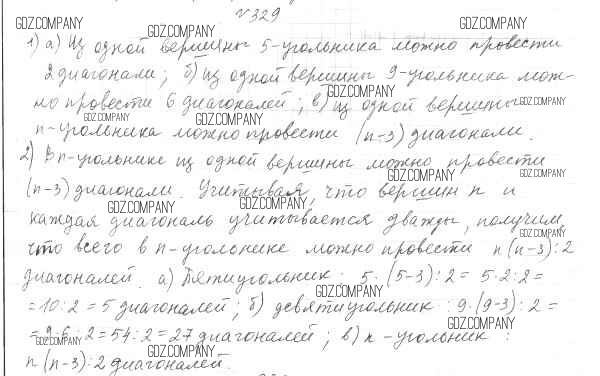 №329
GDZ.COMPANY GDZ.COMPANY GDZ.COMPANY
1) а) Из одной вершины 5-угольника можно провести
2 диагонали; б) из одной вершины 9-угольника мож-
GDZ.COMPANY GDZ.COMPANY
но провести 6 диагоналей; в) из одной вершины
GDZ.COMPANY GDZ.COMPANY GDZ.COMPANY
n-угольника можно провести (n-3) диагонали.
2) В n-угольнике из одной вершины можно провести
GDZ.COMPANY GDZ.COMPANY
(n-3) диагонали. Учитывая, что вершин n и
GDZ.COMPANY GDZ.COMPANY
каждая диагональ учитывается дважды, получим,
GDZ.COMPANY GDZ.COMPANY
что всего в n-угольнике можно провести n(n-3):2
диагоналей. а) Пятиугольник: 5·(5-3):2=5·2:2=
GDZ.COMPANY GDZ.COMPANY
=10:2=5 диагоналей; б) девятиугольник: 9·(9-3):2=
GDZ.COMPANY
=9·6:2=54:2=27 диагоналей; в) n-угольник:
GDZ.COMPANY GDZ.COMPANY
n(n-3):2 диагоналей.